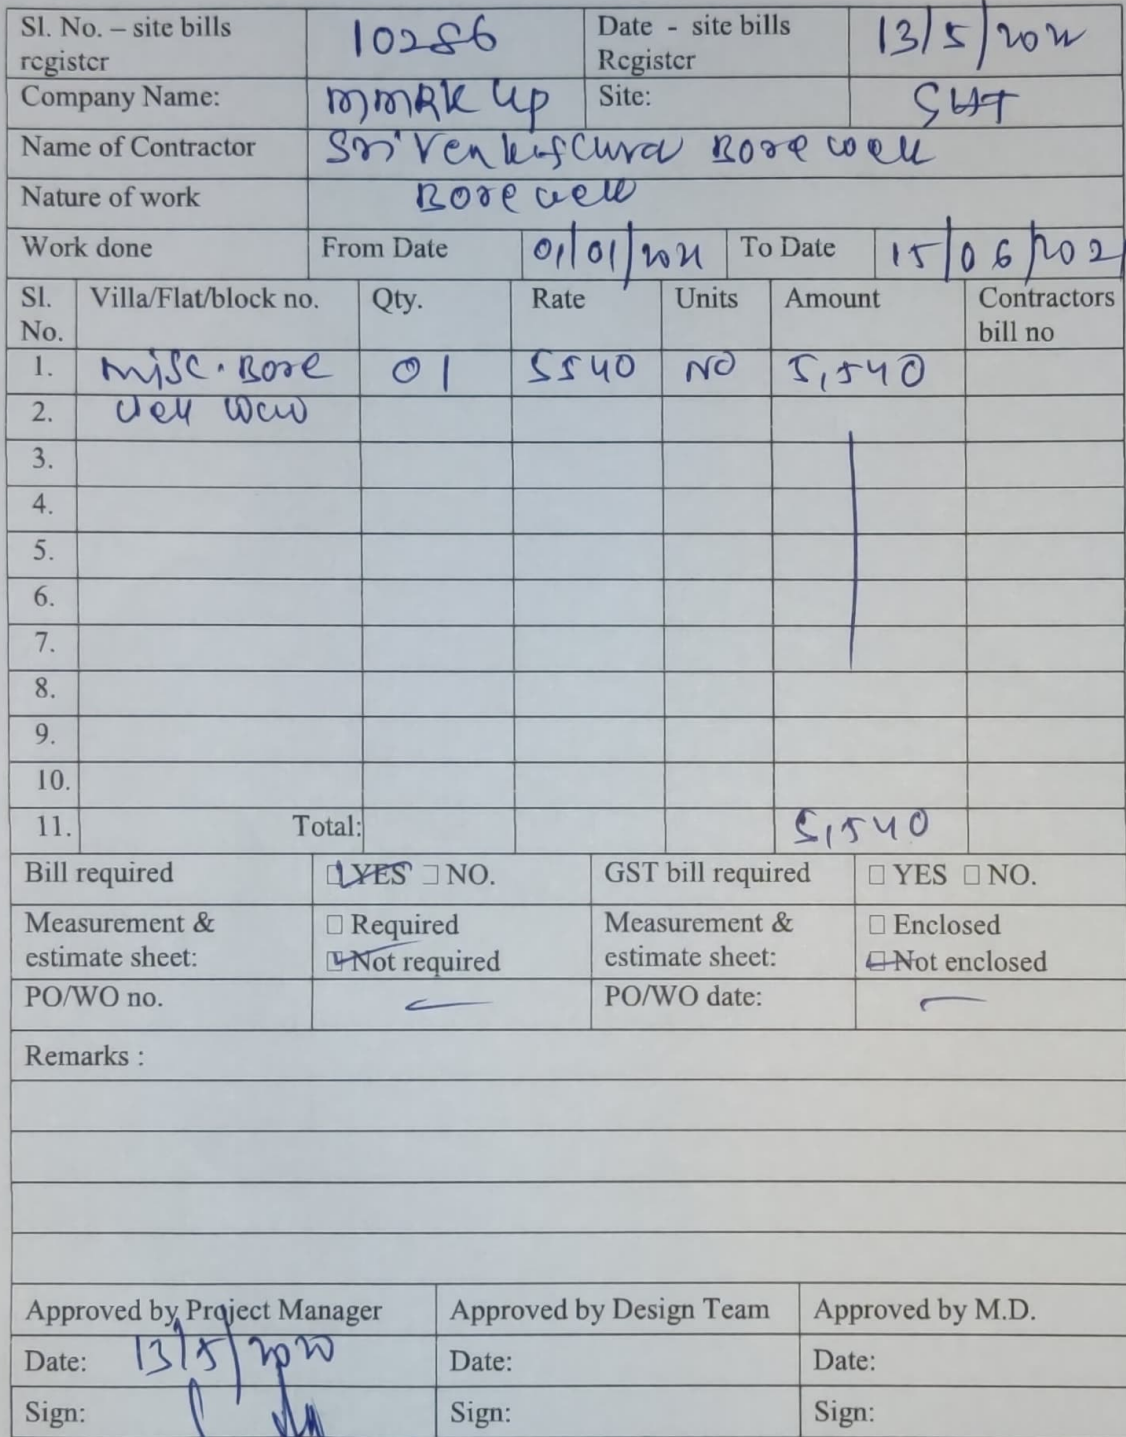 Sl. No. – site bills register 10286 Date - site bills Register 13/5/2022
Company Name: MMRK Up Site: SHT
Name of Contractor Sri Borewell
Nature of work Borewell
Work done From Date 01/01/2021 To Date 15/06/202
Sl. No. Villa/Flat/block no. Qty. Rate Units Amount Contractors bill no
1. Misc. Bore 01 5540 NO 5,540
2. well
3.
4.
5.
6.
7.
8.
9.
10.
11. Total: 5,540
Bill required YES NO. GST bill required YES NO.
Measurement & estimate sheet: Required Measurement & estimate sheet: Enclosed
Not required Not enclosed
PO/WO no. PO/WO date:
Remarks :
Approved by Project Manager Approved by Design Team Approved by M.D.
Date: 13/5/ Date: Date:
Sign: Sign: Sign: